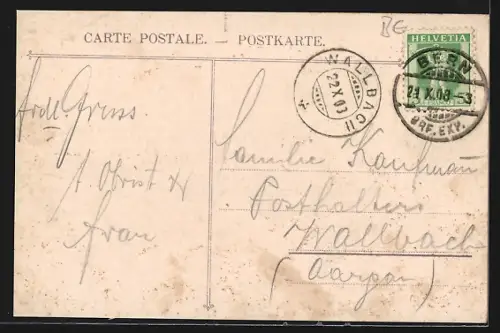 BG
CARTE POSTALE. — POSTKARTE.
HELVETIA
BERN
21.X.08.-3
BRF. EXP.
WALLBACH
22.X.08
Frdl. Gruss
A. Obrist &
Frau
Familie Kaufmann
Posthalters
Wallbach
(Aargau)